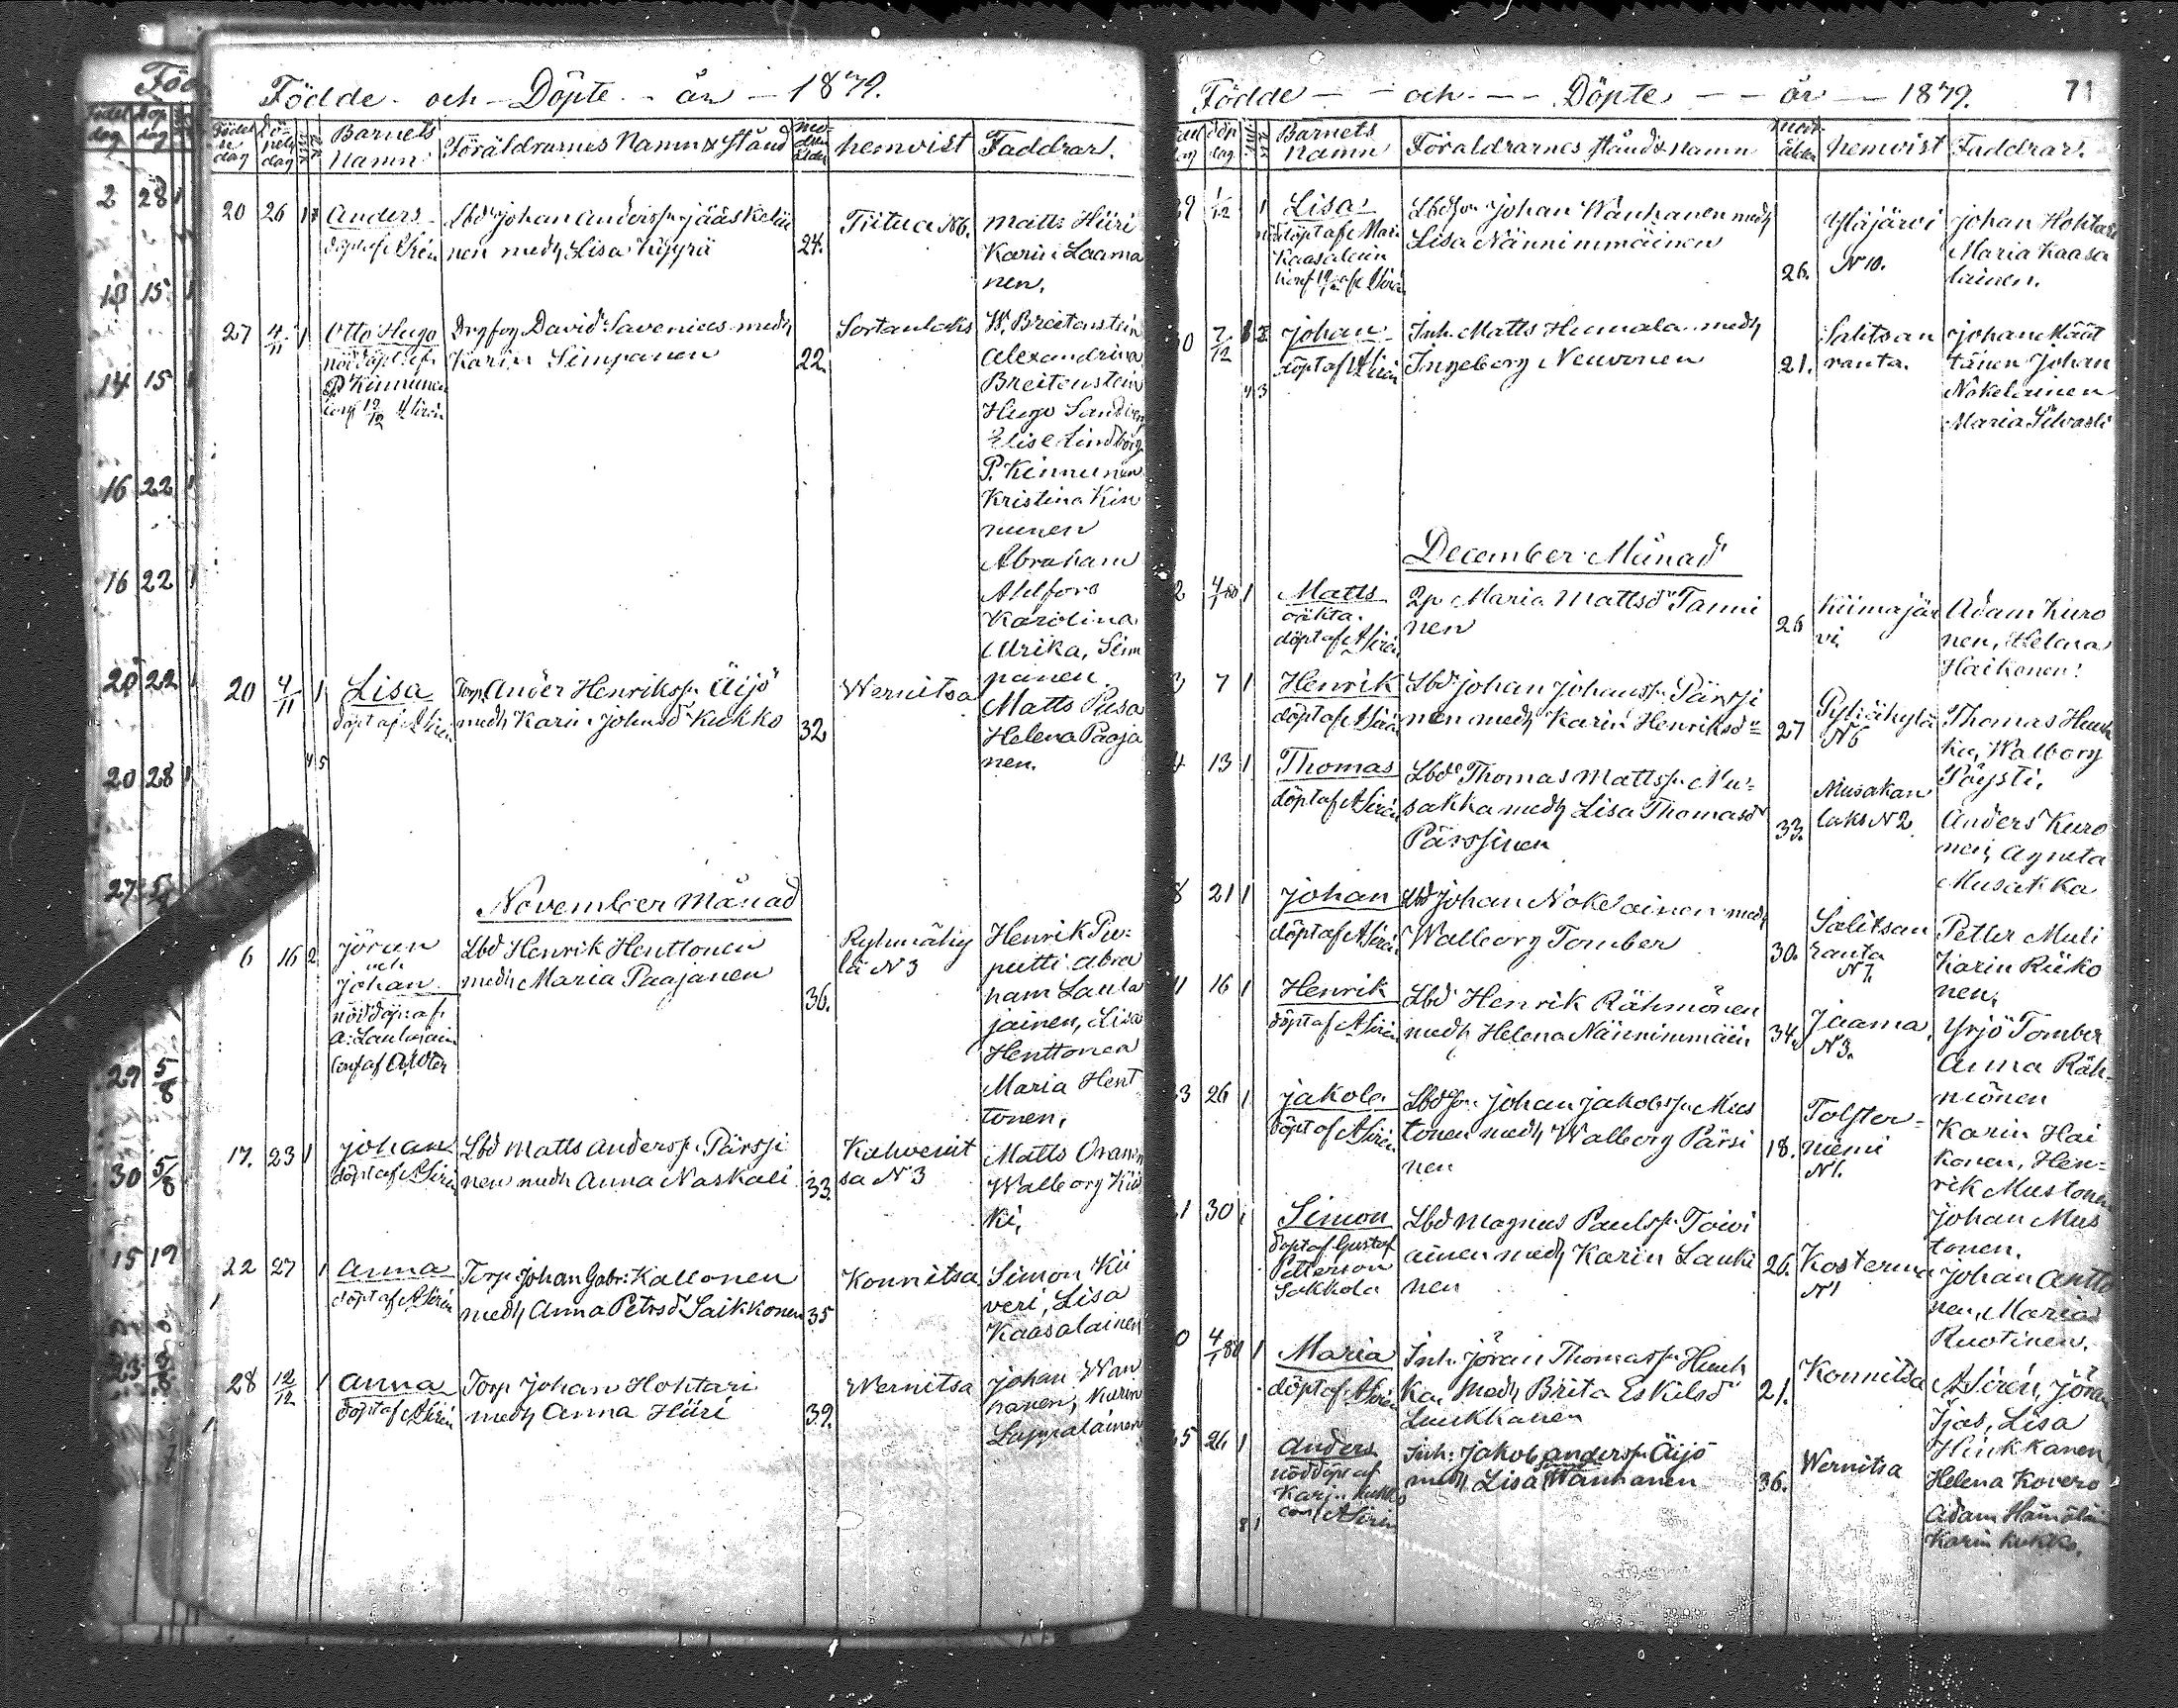 Födde och Döpte år 1879.
Födelse dag
Döpelse dag
Barnets Namn
Föräldrarnes Namn & Stånd
hemvist
Faddrar.
20 26 1
Anders
döpt af A Sirén
Lbd Johan Anderss. Jääskeläi
nen medh Lisa Kÿyrä
24.
Tiitua N6.
Matts Hiiri
Karin Laama
nen.
27 4/11 1
Otto Hugo
nöddöpt af
P. Kinnunen
conf 19/12 A Sirén
Drgfog David Savenius medh
Karin Simpanen
22
Sortanlaks
W. Breitenstein
Alexandrina
Breitenstein
Hugo Sandberg
Elise Lindborg
P. Kinnunen
Kristina Kin
nunen
Abraham
Ahlfors
Karolina
Ulrika, Sim
panen.
20 4/11 1
Lisa
döpt af A Sirén
Torp. Ander Henrikss. Äijö
medh Karin Johnsd Kukko
32
Wernitsa
Matts Pusa
Helena Paaja
nen.
4 5
November Månad
6 16 2
Jöran
och
Johan
nöddöp. af
conf af
Lbd Henrik Henttonen
medh Maria Paajanen
36.
Ryhmäky
lä N 3
Henrik Pu-
putti Abra
ham Laula
jainen, Lisa
Henttonen
Maria Hent
tonen.
17. 23 1
Johan
döpt af A Sirén
Lbd Matts Anderss. Pärssi
nen medh Anna Naskali
33.
Kahvenit
sa N 3
Matts Oranen
Walborg Kii
ki,
22 27 1
Anna
döpt af A Sirén
Torp. Johan Gabr: Kallonen
medh Anna Petrsd Saikkonen
35
Konnitsa
Simon Kii
veri, Lisa
Kaasalainen
28 12/12 1
Anna
döpt af A Sirén
Torp Johan Hohtari
medh Anna Hiiri
39.
Wernitsa
Johan Wan
hanen, Karin
Lappalainen
Födde och Döpte år 1879.
71
Barnets namn
Föräldrarnes stånd & namn
hemvist
Faddrar.
29 1/12 1
Lisa
nöddöpt af Maria
Kaasalain
conf 19/12 af A Sirén
Lbdsn Johan Wanhanen medh
Lisa Nännimmäinen
26.
Yläjärvi
N 10.
Johan Hohtari
Maria Kaasa
lainen.
30 7/12
Johan
döpt af A Sirén
Inh. Matts Humala medh
Ingeborg Neuvonen
21.
Salitsan
ranta.
Johan Määt
tänen Johan
Nokelainen
Maria Silvasti
4 3
December Månad
2 4/1 80 1
Matts
oäkta.
döpt af A Sirén
Qp Maria Mattsd Tanni
nen
26
Kiimajär
vi.
Adam Kuro
nen, Helena
Haikonen.
3 7 1
Henrik
döpt af A Sirén
Lbd Johan Johanss. Pärssi
nen medh Karin Henriksd
27
Pyhäkylä
N6
Thomas Huuh
ka, Walborg
Pöysti.
4 13 1
Thomas
döpt af A Sirén
Lbd Thomas Mattss. Mu-
sakka medh Lisa Thomasd
Pärssinen
33.
Musakan
laks N 2
Anders Kuro
nen, Agneta
Musakka
8 21 1
Johan
döpt af A Sirén
Lbd Johan Nokelainen medh
Walborg Tomber
30.
Salitsan
ranta
N 7.
Petter Muli
Karin Riiko
nen.
11 16 1
Henrik
döpt af A Sirén
Lbd Henrik Rähmönen
medh Helena Nännimmäin
34.
Jaama
N 3.
Yrjö Tomber
Anna Räh-
mönen
26 1
Jakob
döpt af A Sirén
Lbdsn. Johan Jakobss. Mus
tonen medh Walborg Pärsi
nen
18.
niemi
N 1.
Karin Hai
konen, Hen-
rik Mustonen
Johan Mus
tonen.
30 1
Simon
döpt af Gustaf
Petterson
Sakkola
Lbd Magnus Paulss. Toivi
ainen medh Karin Lauki
nen
26.
Kosterma
N 1
Johan Antto
nen, Maria
Ruotinen.
4/1 80 1
Maria
döpt af A Sirén
Inh. Jöran Thomass. Huuh
ka, medh Brita Eskilsd
Luukkanen
21.
Konnitsa
A Sirén, Jöran
Ijas, Lisa
Hinkkanen
26 1
Anders
nöddöpt af
Karin Kukko
conf A Sirén
Inh: Jakob Anderss. Äijö
medh Lisa Wanhanen
36.
Wernitsa
Helena Kovero
Adam Hämäläin
Karin Kukko.
8 1